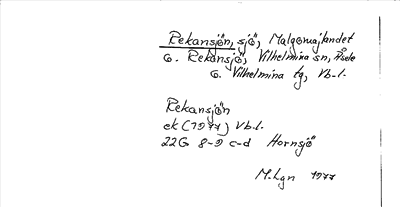 Rekansjön, sjö, Malgomajlandet
o. Rekansjö, Vilhelmina sn, Åsele
o. Vilhelmina tg, Vb.l.
Rekansjön
ek (1977) Vb.l.
22G 8-9 c-d Hornsjö
M.Lgn 1977